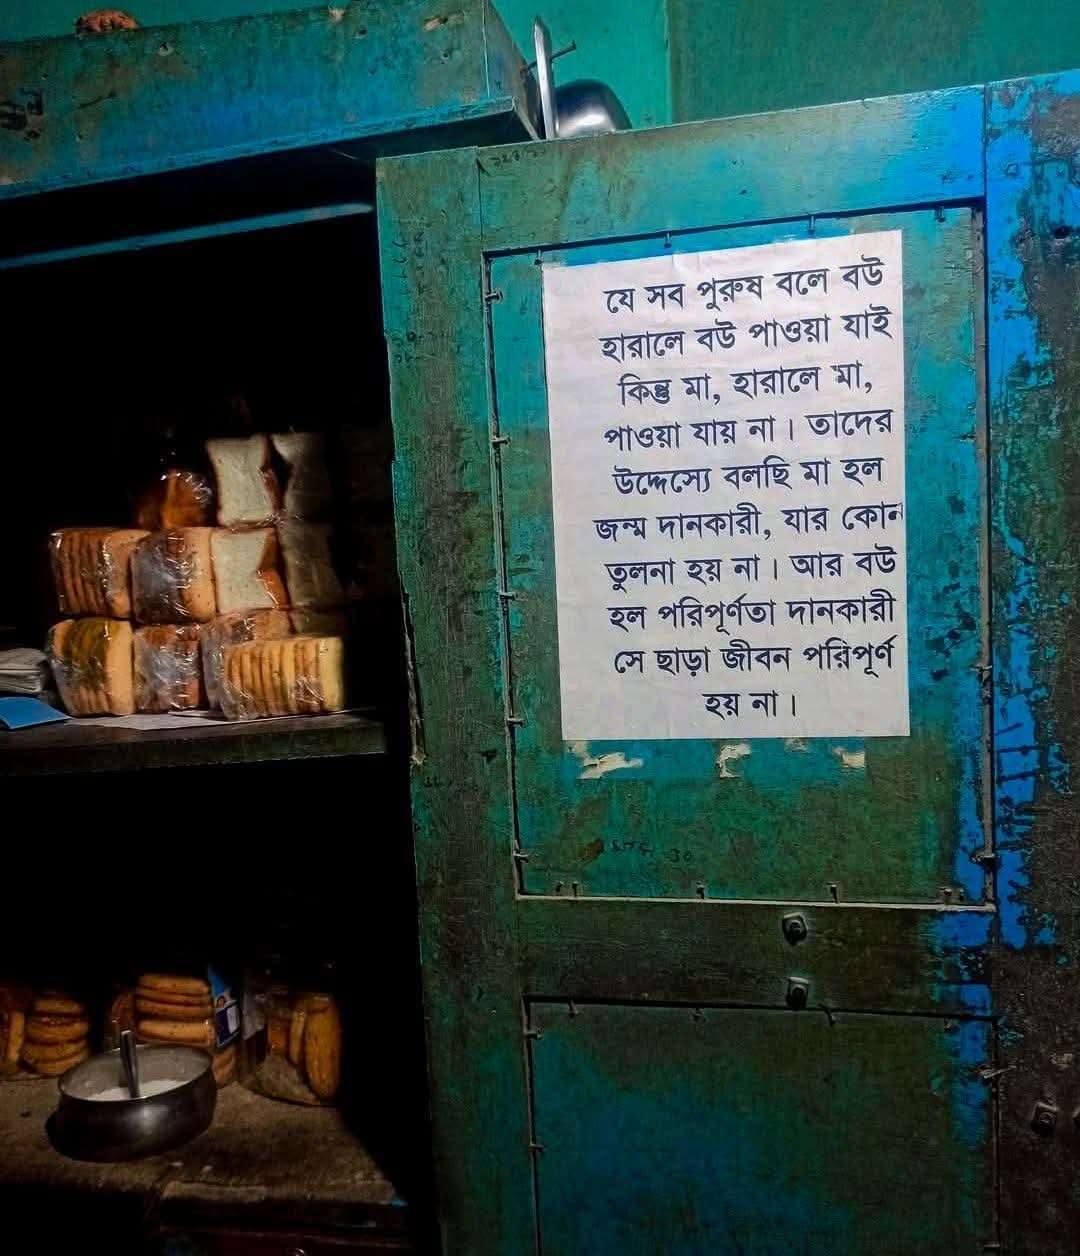 যে সব পুরুষ বলে বউ
হারালে বউ পাওয়া যাই
কিন্তু মা, হারালে মা,
পাওয়া যায় না। তাদের
উদ্দেস্যে বলছি মা হল
জন্ম দানকারী, যার কোন
তুলনা হয় না। আর বউ
হল পরিপূর্ণতা দানকারী
সে ছাড়া জীবন পরিপূর্ণ
হয় না।